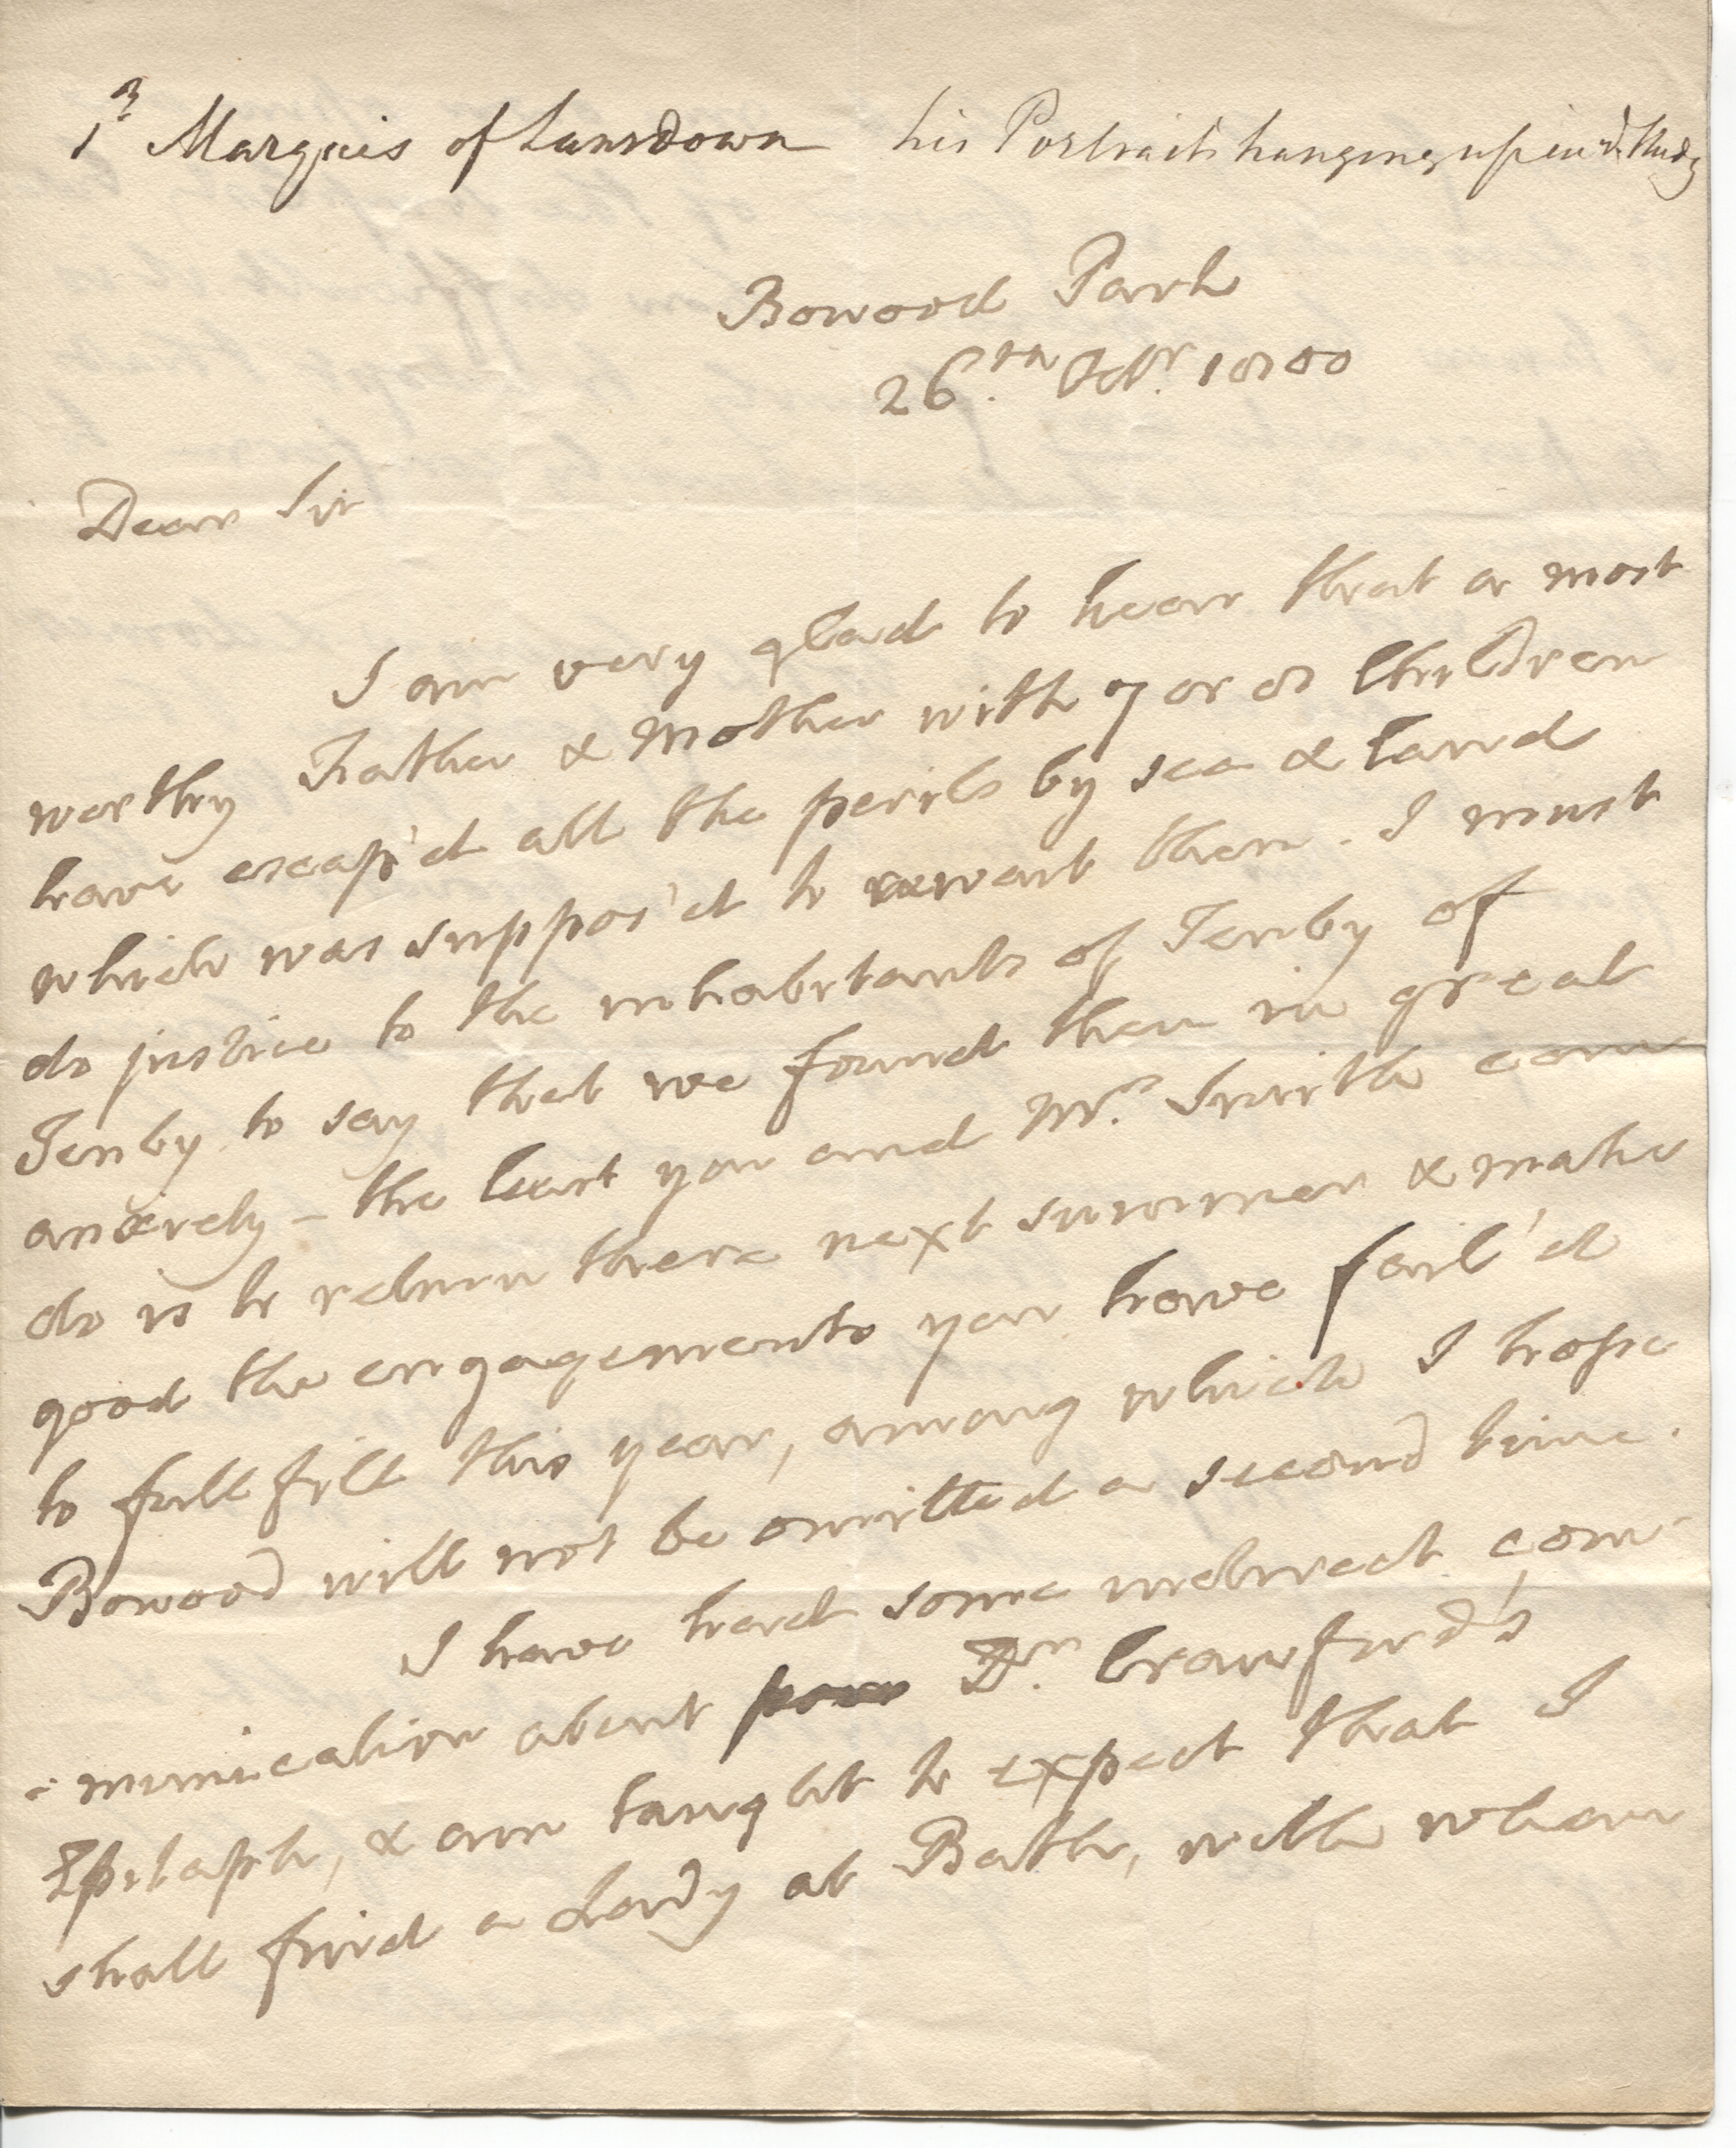 1st Marquis of Lansdown his Portrait hanging up in Study
Bowood Park
26th Octr. 1800
Dear Sir
I am very glad to hear that a most
worthy Father & Mother with 7 or 8 Children
have escap'd all the perils by sea & land
which was suppos'd to await them. I must
do justice to the inhabitants of Tenby of
Tenby to say that we found them in great
anxiety - the least you and Mrs. Smith can
do is to return there next summer & make
good the engagements you have fail'd
to fullfill this year, among which I hope
Bowood will not be omitted a second time.
I have had some indirect com-
-munication about poor Dr. Crawfurd's
Epitaph, & am taught to expect that I
shall find a Lady at Bath, with whom